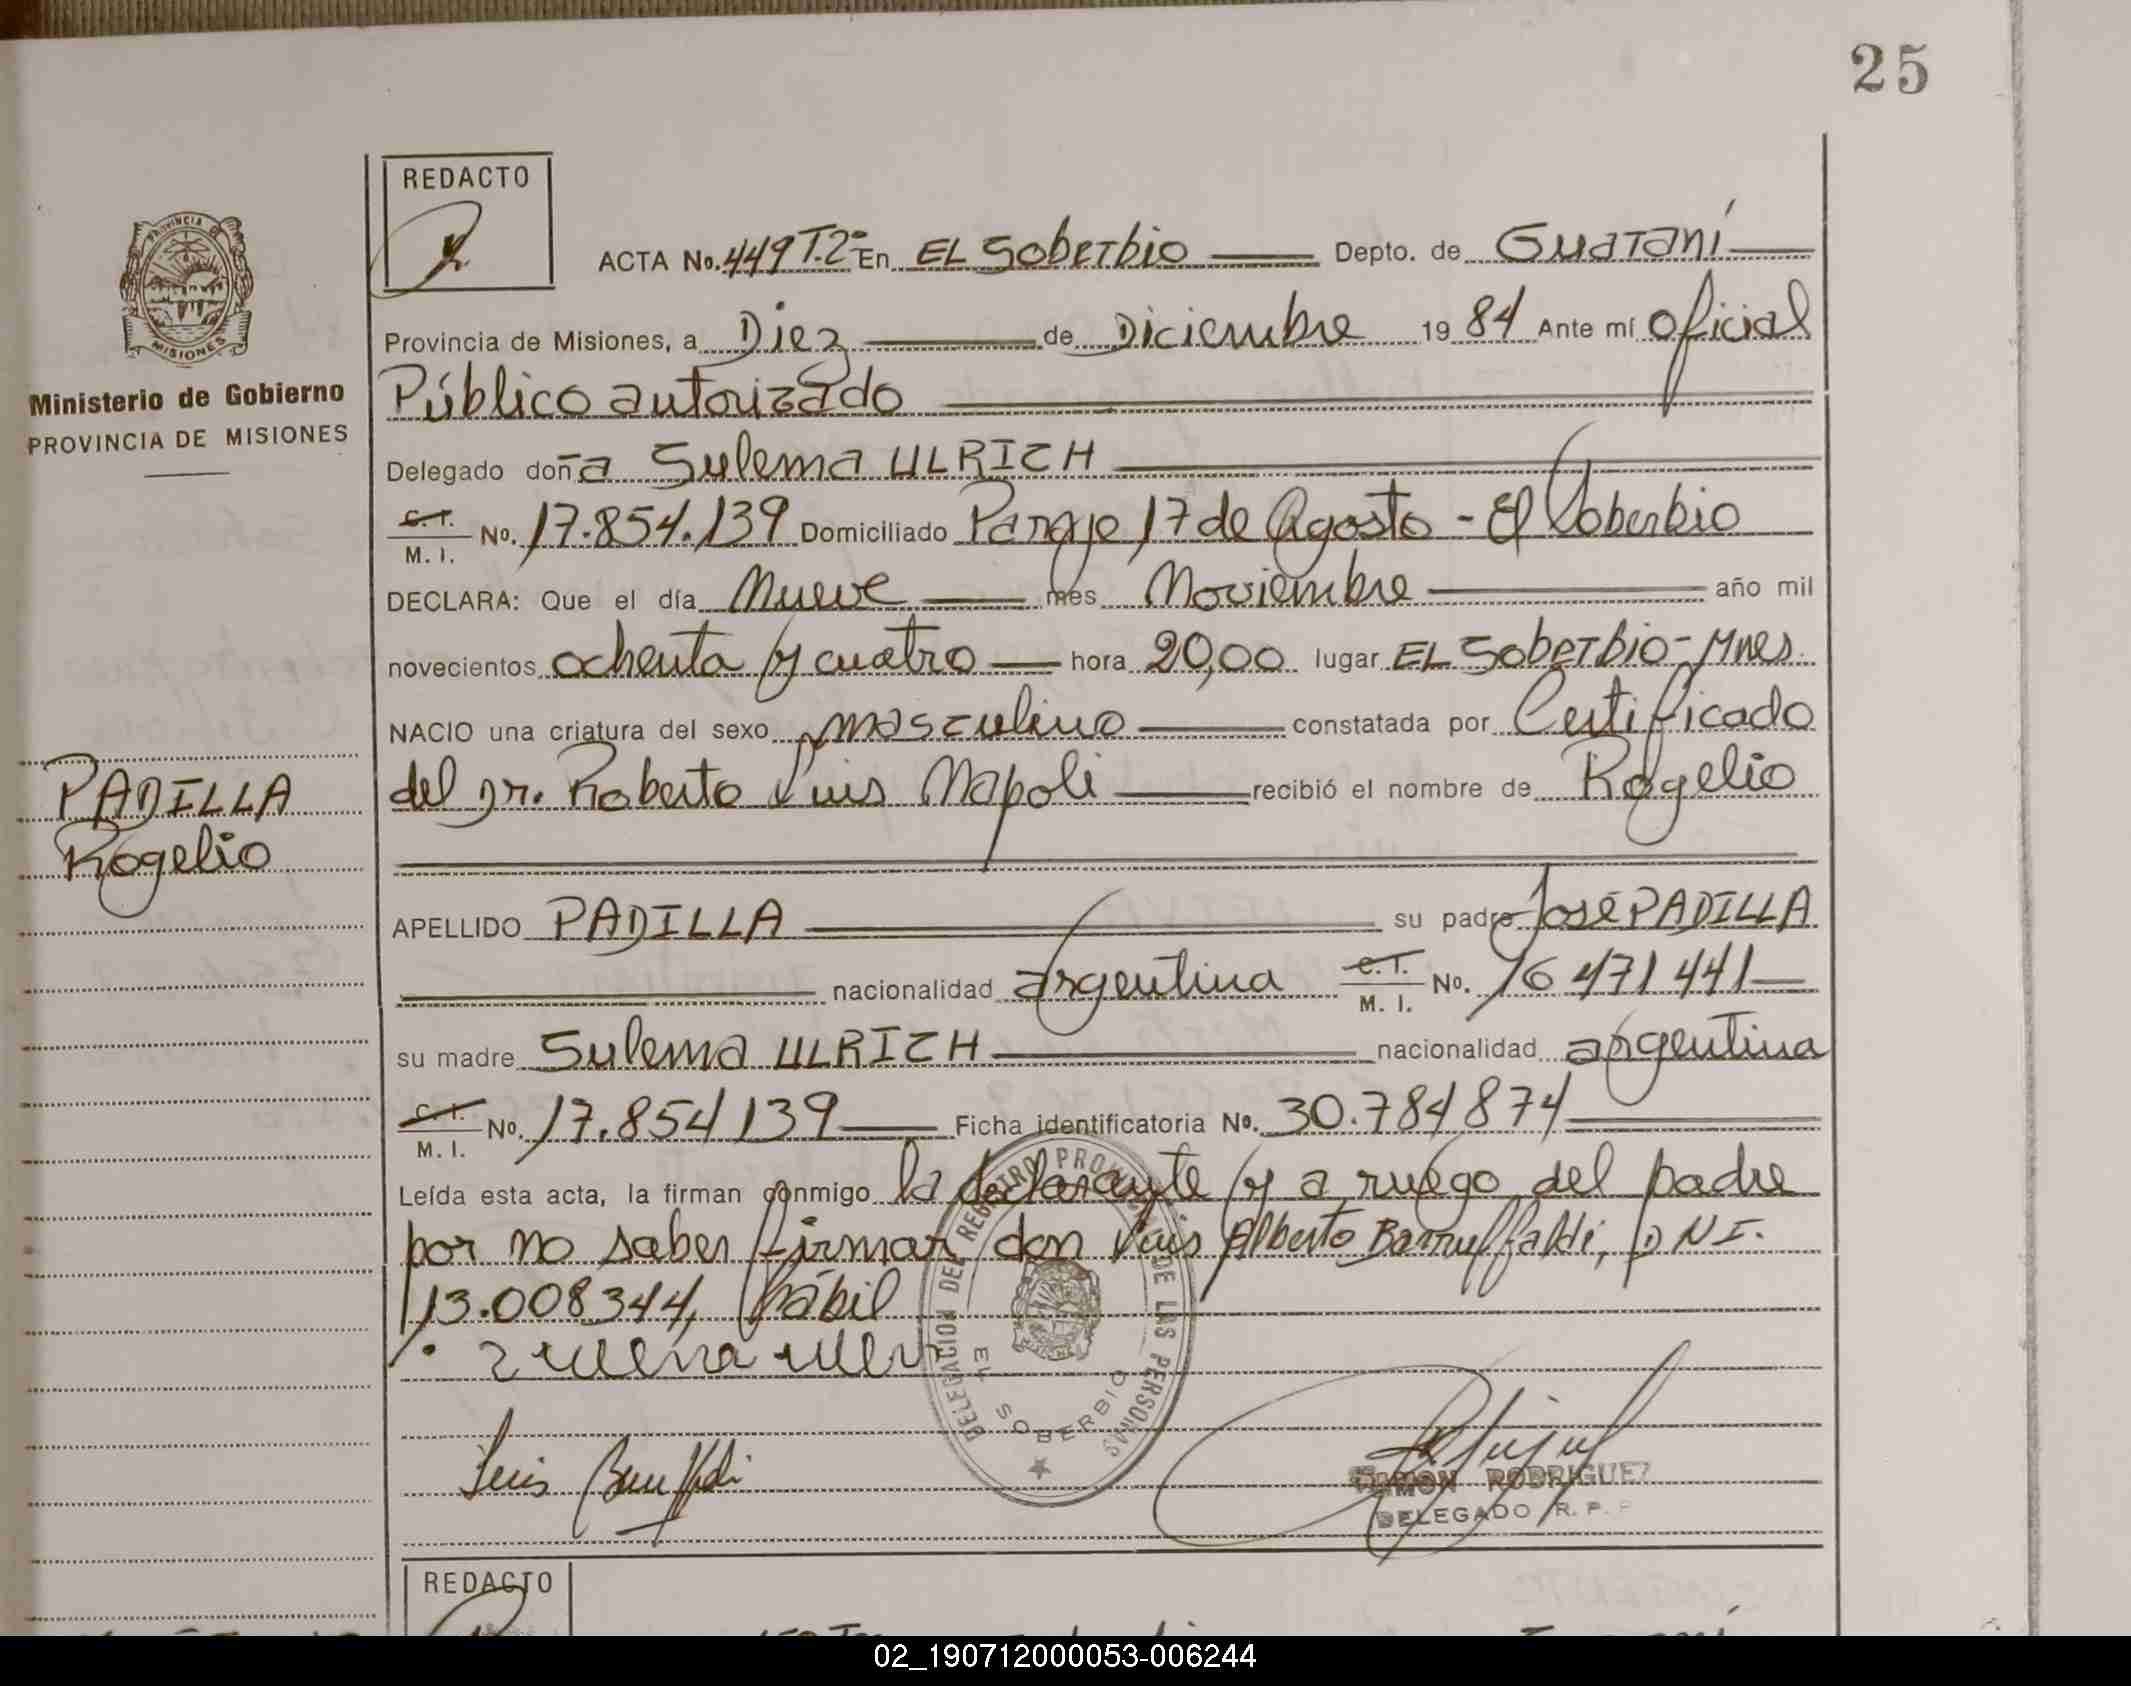 25
REDACTO
PROVINCIA DE
MISIONES
Ministerio de Gobierno
PROVINCIA DE MISIONES
ACTA No. 449 T.2º En EL Soberbio Depto. de Guaraní
Provincia de Misiones, a Diez de Diciembre 1984 Ante mí oficial
Público autorizado
Delegado doña Sulema ULRICH
C. I.
M. I. No. 17.854.139 Domiciliado Paraje 17 de Agosto - El Soberbio
DECLARA: Que el día Nueve mes Noviembre año mil
novecientos ochenta y cuatro hora 20,00 lugar EL Soberbio - Mnes.
NACIO una criatura del sexo masculino constatada por Certificado
del Dr. Roberto Luis Napoli recibió el nombre de Rogelio
PADILLA
Rogelio
APELLIDO PADILLA su padre José PADILLA
nacionalidad argentina C. I.
M. I. No. 16 471 441
su madre Sulema ULRICH nacionalidad argentina
C. I.
M. I. No. 17.854 139 Ficha identificatoria No. 30.784 874
Leída esta acta, la firman conmigo la declarante y a ruego del padre
por no saber firmar don Luis Alberto Barruffaldi, D N I.
13.008344, hábil
DELEGACION DEL REGISTRO PROVINCIAL DE LAS PERSONAS
EL SOBERBIO
Luis
RAMON RODRIGUEZ
DELEGADO R. P. P
REDACTO
02_190712000053-006244